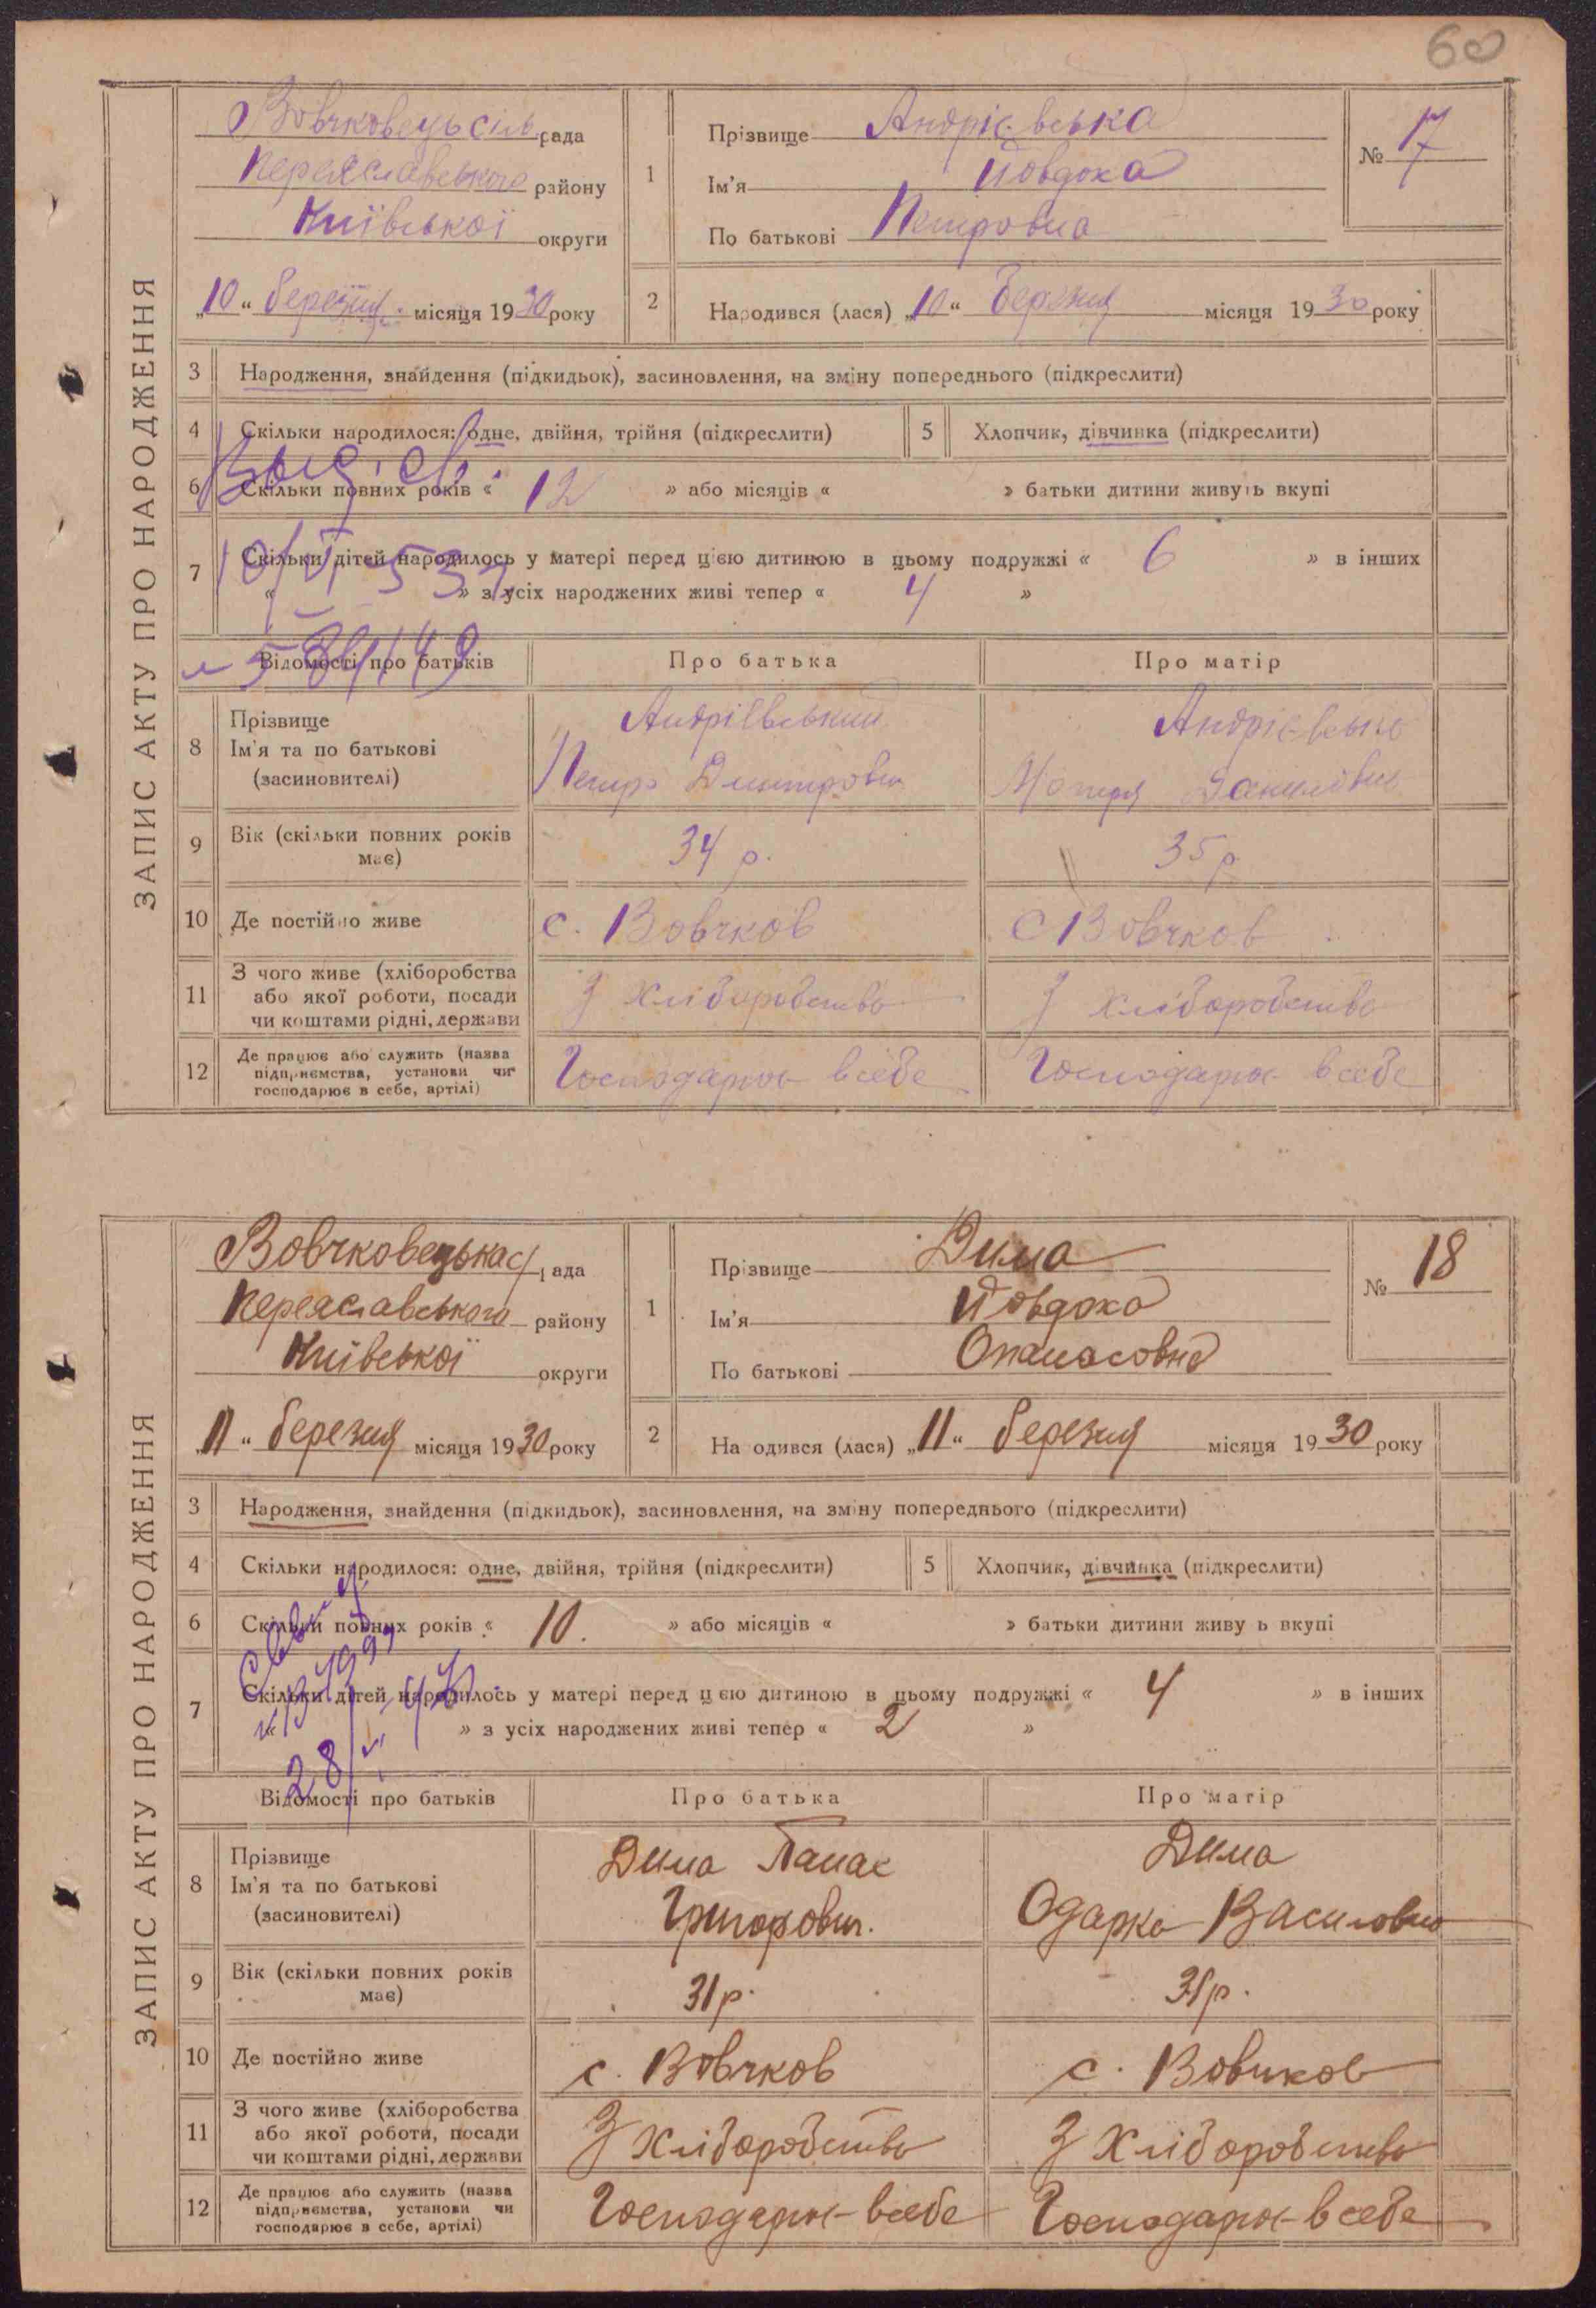 60
ЗАПИС АКТУ ПРО НАРОДЖЕННЯ
Вовчковець сіль рада
Переяславського району
Київської округи
„10“ березня місяця 1930 року
1
Прізвище Андрієвська
Ім'я Йовдоха
По батькові Петровна
№ 17
2
Народився (лася) „10“ березня місяця 1930 року
3 Народження, знайдення (підкидьок), засиновлення, на зміну попереднього (підкреслити)
4 Скільки народилося: одне, двійня, трійня (підкреслити)
5 Хлопчик, дівчинка (підкреслити)
6 Скільки повних років « 12 » або місяців « » батьки дитини живуть вкупі
7 Скільки дітей народилось у матері перед цією дитиною в цьому подружжі « 6 » в інших
« » з усіх народжених живі тепер « 4 »
Відомості про батьків Про батька Про матір
8 Прізвище
Ім'я та по батькові
(засиновителі)
Андрієвський
Петро Дмитрович
Андрієвська
Мотря Даниловна
9 Вік (скільки повних років має) 34 р. 35 р.
10 Де постійно живе с. Вовчков с Вовчков
11 З чого живе (хліборобства
або якої роботи, посади
чи коштами рідні, держави
З хліборобства З хліборобства
12 Де працює або служить (назва
підприємства, установи чи
господарює в себе, артілі)
Господарює в себе Господарює в себе
ЗАПИС АКТУ ПРО НАРОДЖЕННЯ
Вовчковецька с/рада
Переяславського району
Київської округи
„11“ березня місяця 1930 року
1
Прізвище Дима
Ім'я Йовдоха
По батькові Опанасовна
№ 18
2
Народився (лася) „11“ березня місяця 1930 року
3 Народження, знайдення (підкидьок), засиновлення, на зміну попереднього (підкреслити)
4 Скільки народилося: одне, двійня, трійня (підкреслити)
5 Хлопчик, дівчинка (підкреслити)
6 Скільки повних років « 10. » або місяців « » батьки дитини живуть вкупі
7 Скільки дітей народилось у матері перед цією дитиною в цьому подружжі « 4 » в інших
« » з усіх народжених живі тепер « 2 »
Відомості про батьків Про батька Про матір
8 Прізвище
Ім'я та по батькові
(засиновителі)
Дима Панас
Григорович.
Дима
Одарка Василовна
9 Вік (скільки повних років має) 31 р. 31 р.
10 Де постійно живе с. Вовчков с. Вовчков
11 З чого живе (хліборобства
або якої роботи, посади
чи коштами рідні, держави
З хліборобства З хліборобства
12 Де працює або служить (назва
підприємства, установи чи
господарює в себе, артілі)
Господарює в себе Господарює в себе